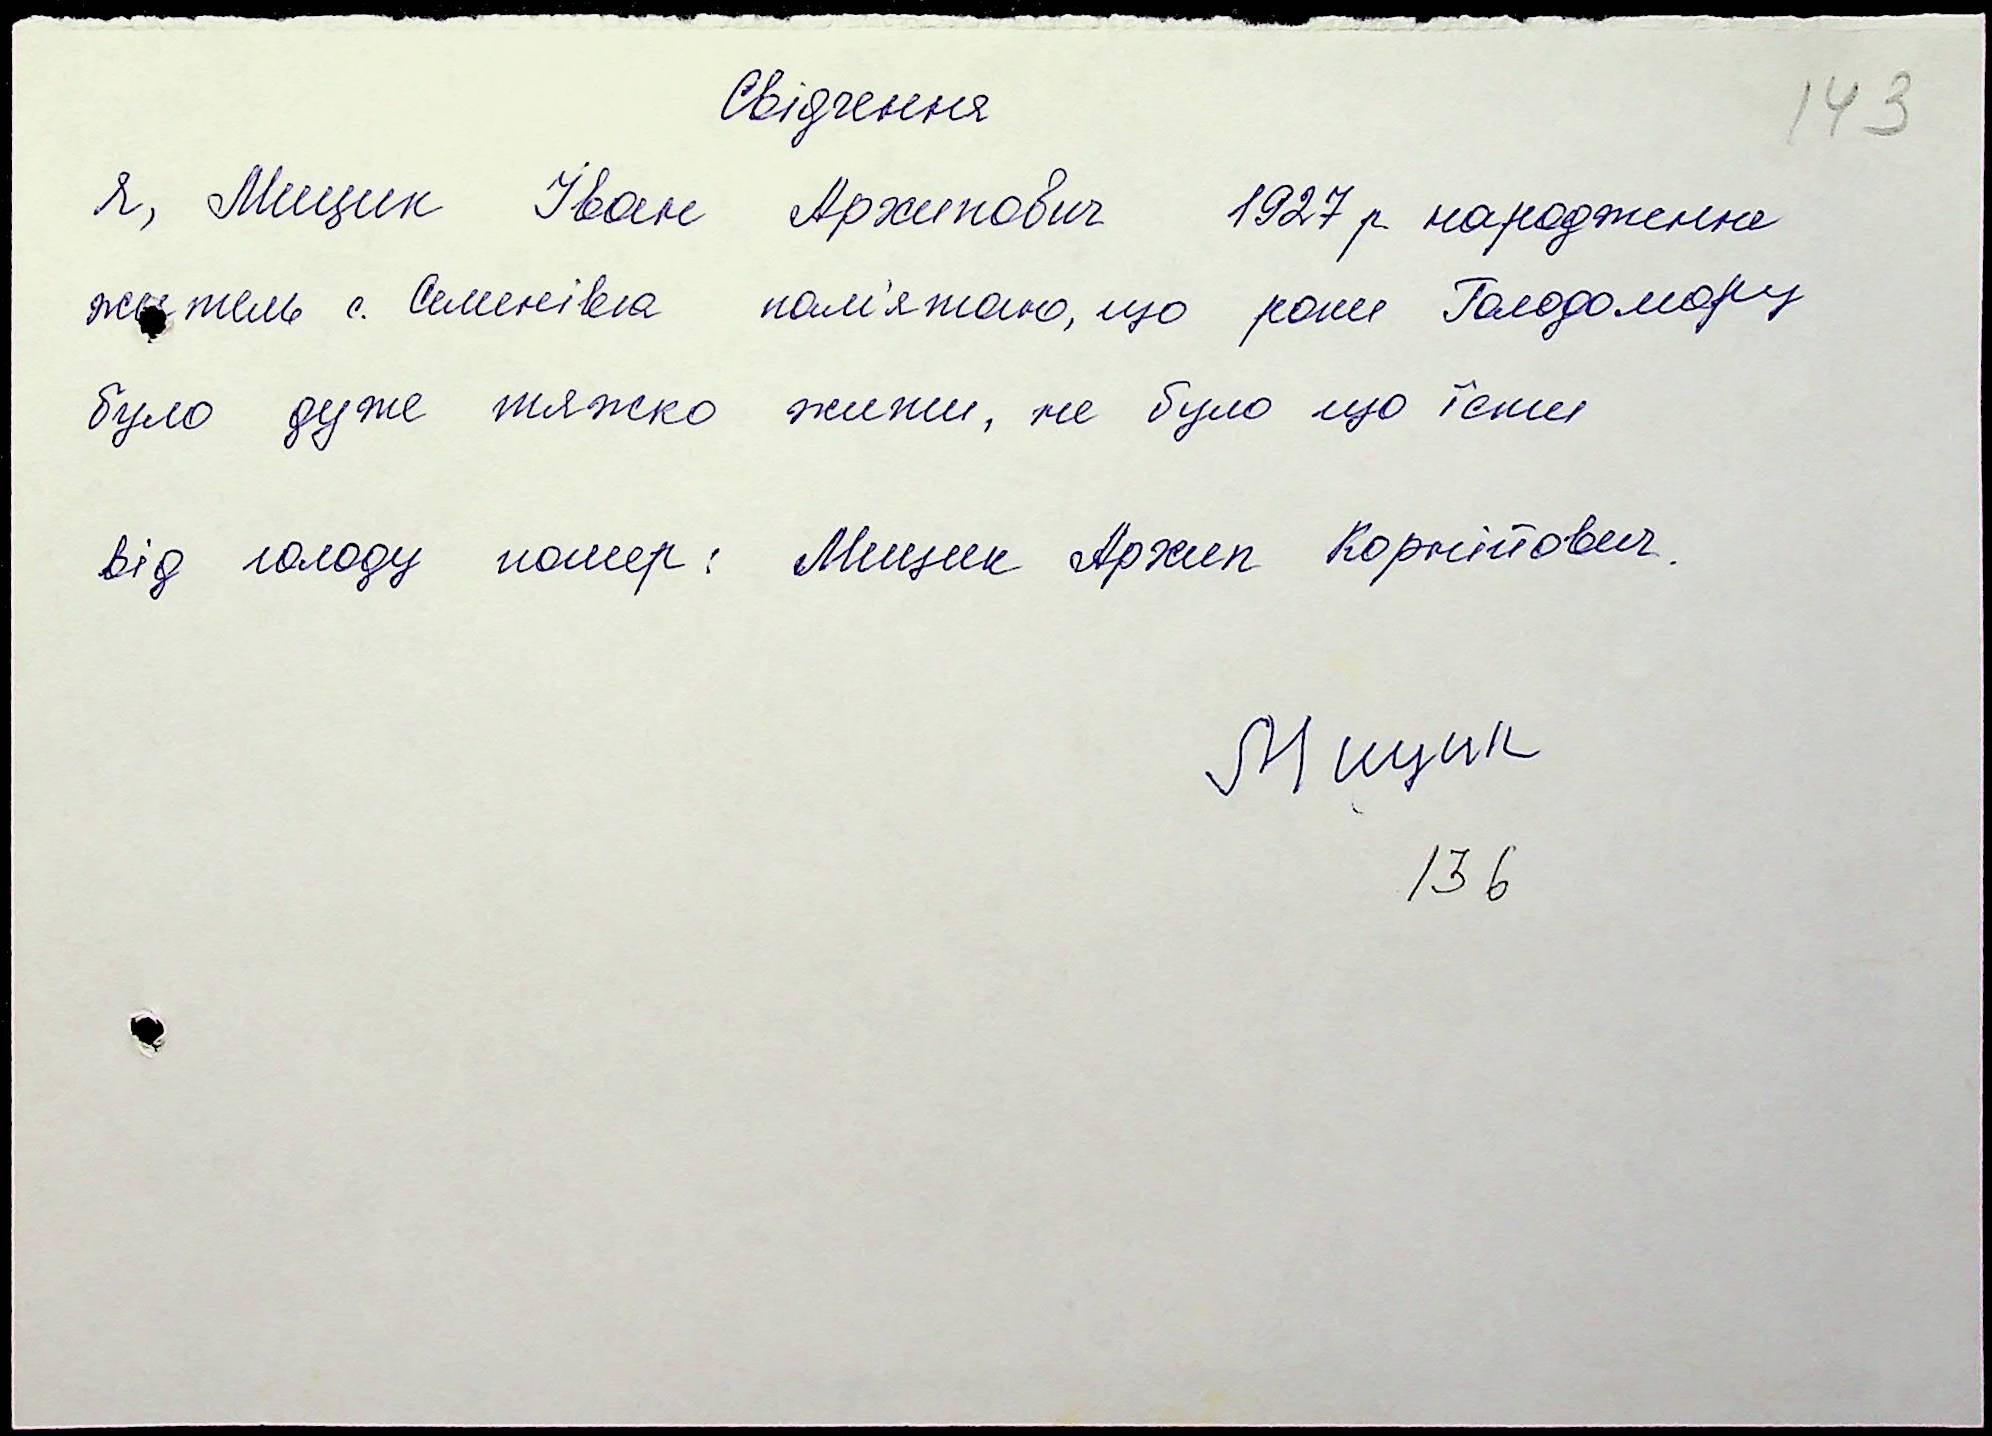 Свідчення
143
Я, Мицик Іван Архипович 1927 р народження
житель с. Семенівка пам'ятаю, що роки Голодомору
було дуже тяжко жити, не було що їсти
від голоду помер: Мицик Архип Корнійович.
Мицик
136